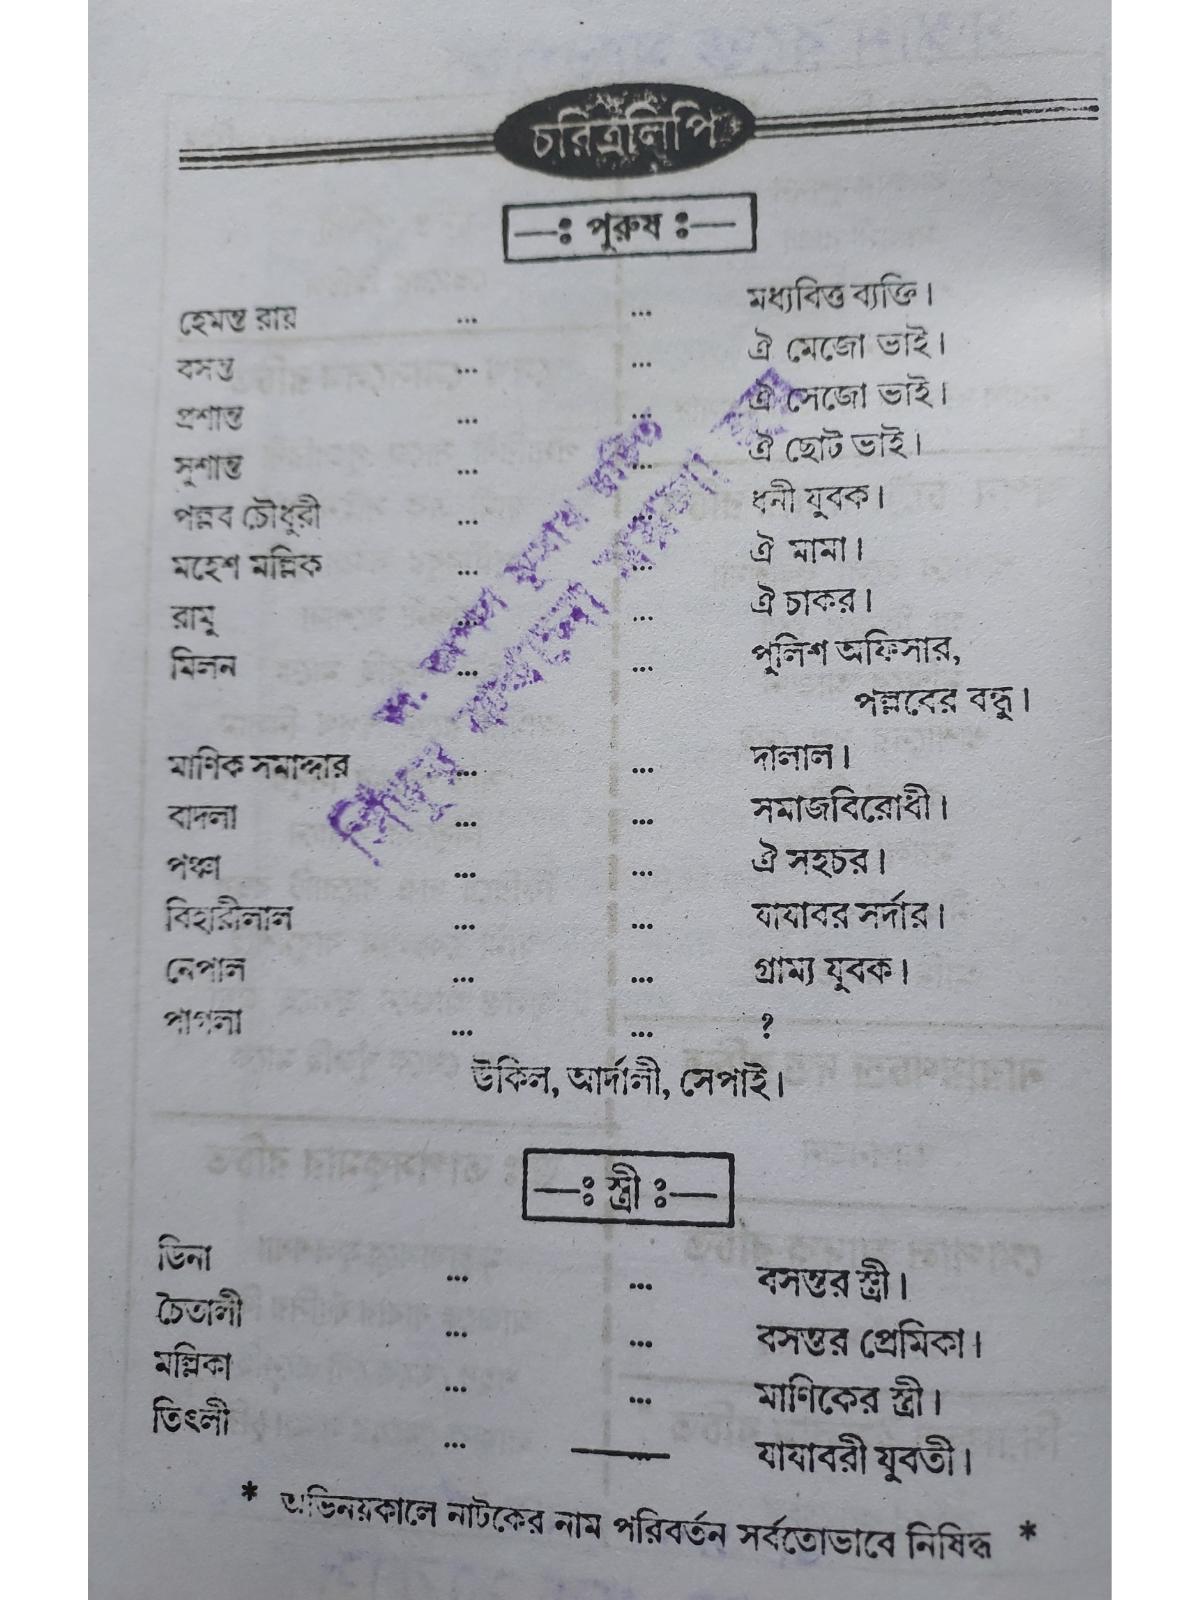 চরিত্রলিপি
—ঃ পুরুষ ঃ—
হেমন্ত রায় ... ... মধ্যবিত্ত ব্যক্তি।
বসন্ত ... ... ঐ মেজো ভাই।
প্রশান্ত ... ... ঐ সেজো ভাই।
সুশান্ত ... ... ঐ ছোট ভাই।
পল্লব চৌধুরী ... ... ধনী যুবক।
মহেশ মল্লিক ... ... ঐ মামা।
রামু ... ... ঐ চাকর।
মিলন ... ... পুলিশ অফিসার,
পল্লবের বন্ধু।
মাণিক সমাদ্দার ... ... দালাল।
বাদলা ... ... সমাজবিরোধী।
পঞ্চা ... ... ঐ সহচর।
বিহারীলাল ... ... যাযাবর সর্দার।
নেপাল ... ... গ্রাম্য যুবক।
পাগলা ... ... ?
উকিল, আর্দালী, সেপাই।
—ঃ স্ত্রী ঃ—
ডিনা ... ... বসন্তর স্ত্রী।
চৈতালী ... ... বসন্তর প্রেমিকা।
মল্লিকা ... ... মাণিকের স্ত্রী।
তিৎলী ... ... যাযাবরী যুবতী।
* অভিনয়কালে নাটকের নাম পরিবর্তন সর্বতোভাবে নিষিদ্ধ *